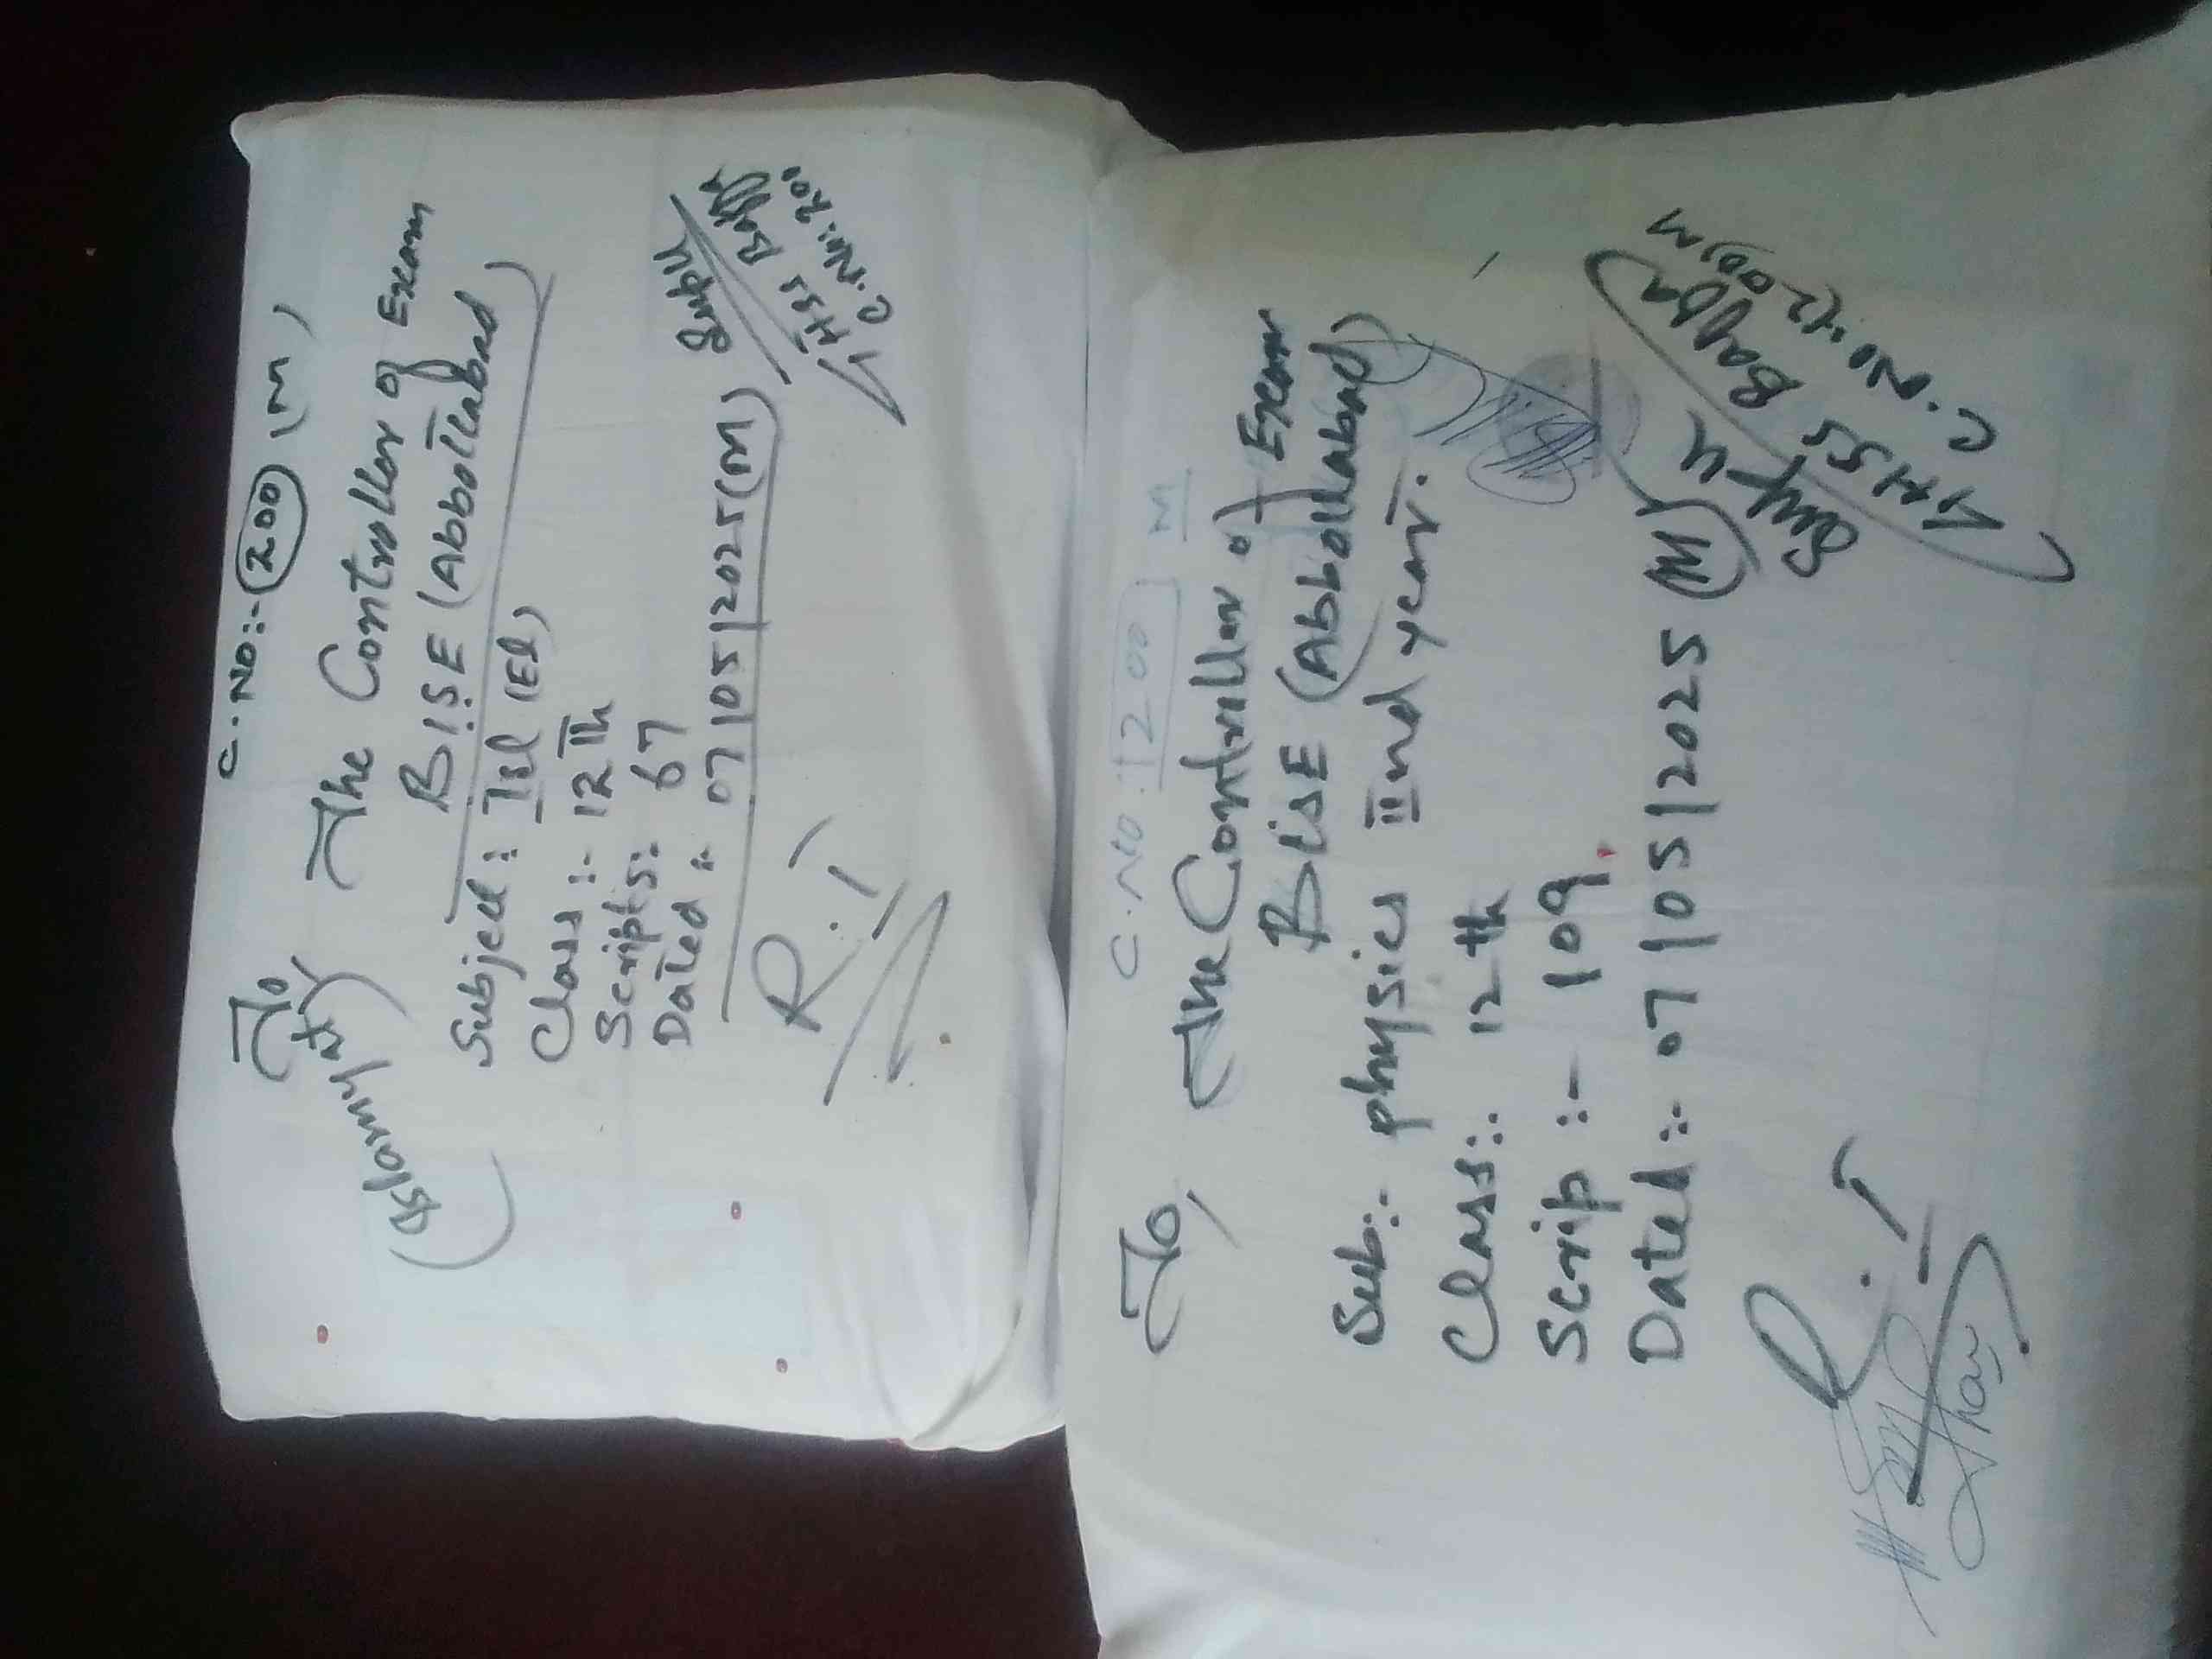 C.NO:- (200) (M)
To
The Controller of Exam
BISE (Abbottabad)
(Islamiyat)
Subject: Isl (El)
Class:- 12th
Scripts:- 67
Dated:- 07/05/2025 (M)
R.I
Supdt
GHSS Baffa
C.No: 200
C.No: 200 M
To,
The Controller of Exam
BISE (Abbottabad)
Sub:- physics IInd year.
Class:- 12th
Scrip:- 109.
Dated:- 07/05/2025 (M)
R.I
Supdt
GHSS Baffa
C.No:- 200 M